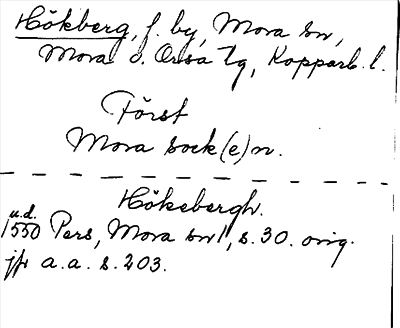 Hökberg, f. by, Mora sn,
Mora o. Orsa tg, Kopparb. l.
Först
Mora sock(e)n.
Höksbergh.
u.d.
1550 Pers, Mora sn 1, s. 30. orig.
jfr a.a. s. 203.